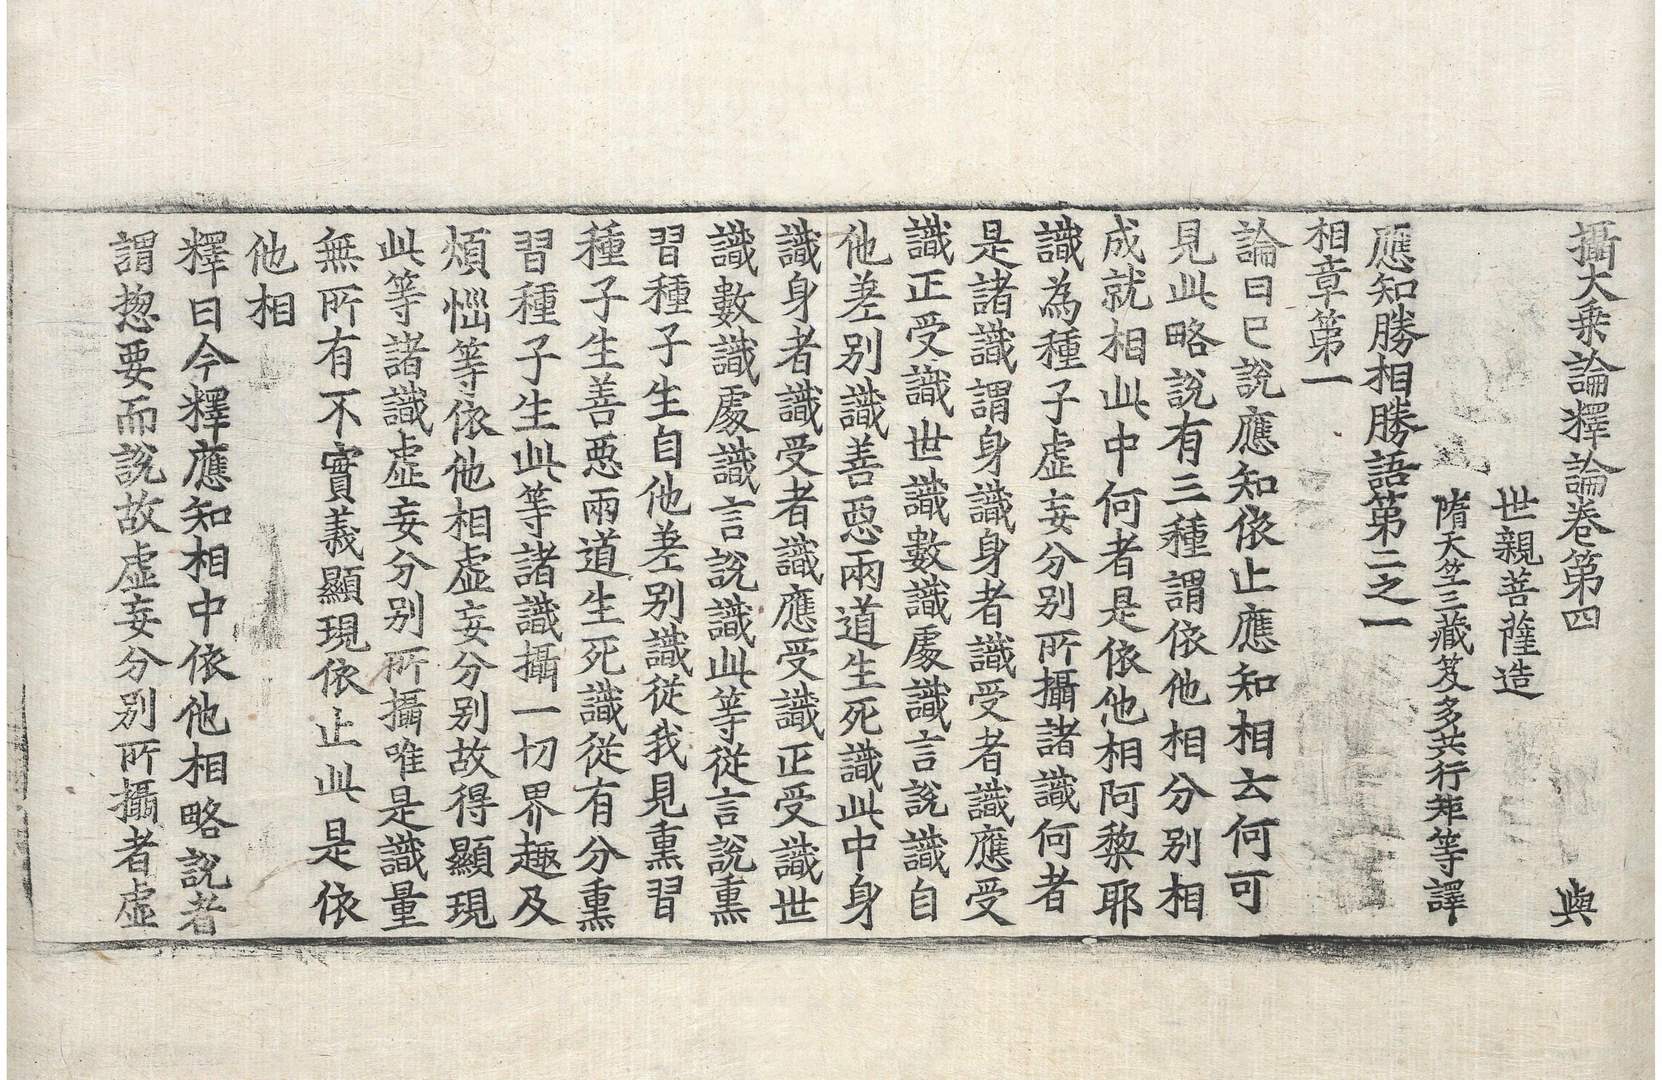 攝大乗論釋論卷第四 與
世親菩薩造
隋天竺三藏笈多共行矩等譯
應知勝相勝語第二之一
相章第一
論曰已說應知依止應知相云何可
見此略說有三種謂依他相分別相
成就相此中何者是依他相阿黎耶
識為種子虛妄分別所攝諸識何者
是諸識謂身識身者識受者識應受
識正受識世識數識處識言說識自
他差別識善惡兩道生死識此中身
識身者識受者識應受識正受識世
識數識處識言說識此等從言說熏
習種子生自他差別識從我見熏習
種子生善惡兩道生死識從有分熏
習種子生此等諸識攝一切界趣及
煩惱等依他相虛妄分別故得顯現
此等諸識虛妄分別所攝唯是識量
無所有不實義顯現依止此是依
他相
釋曰今釋應知相中依他相略說者
謂揔要而說故虛妄分別所攝者虛